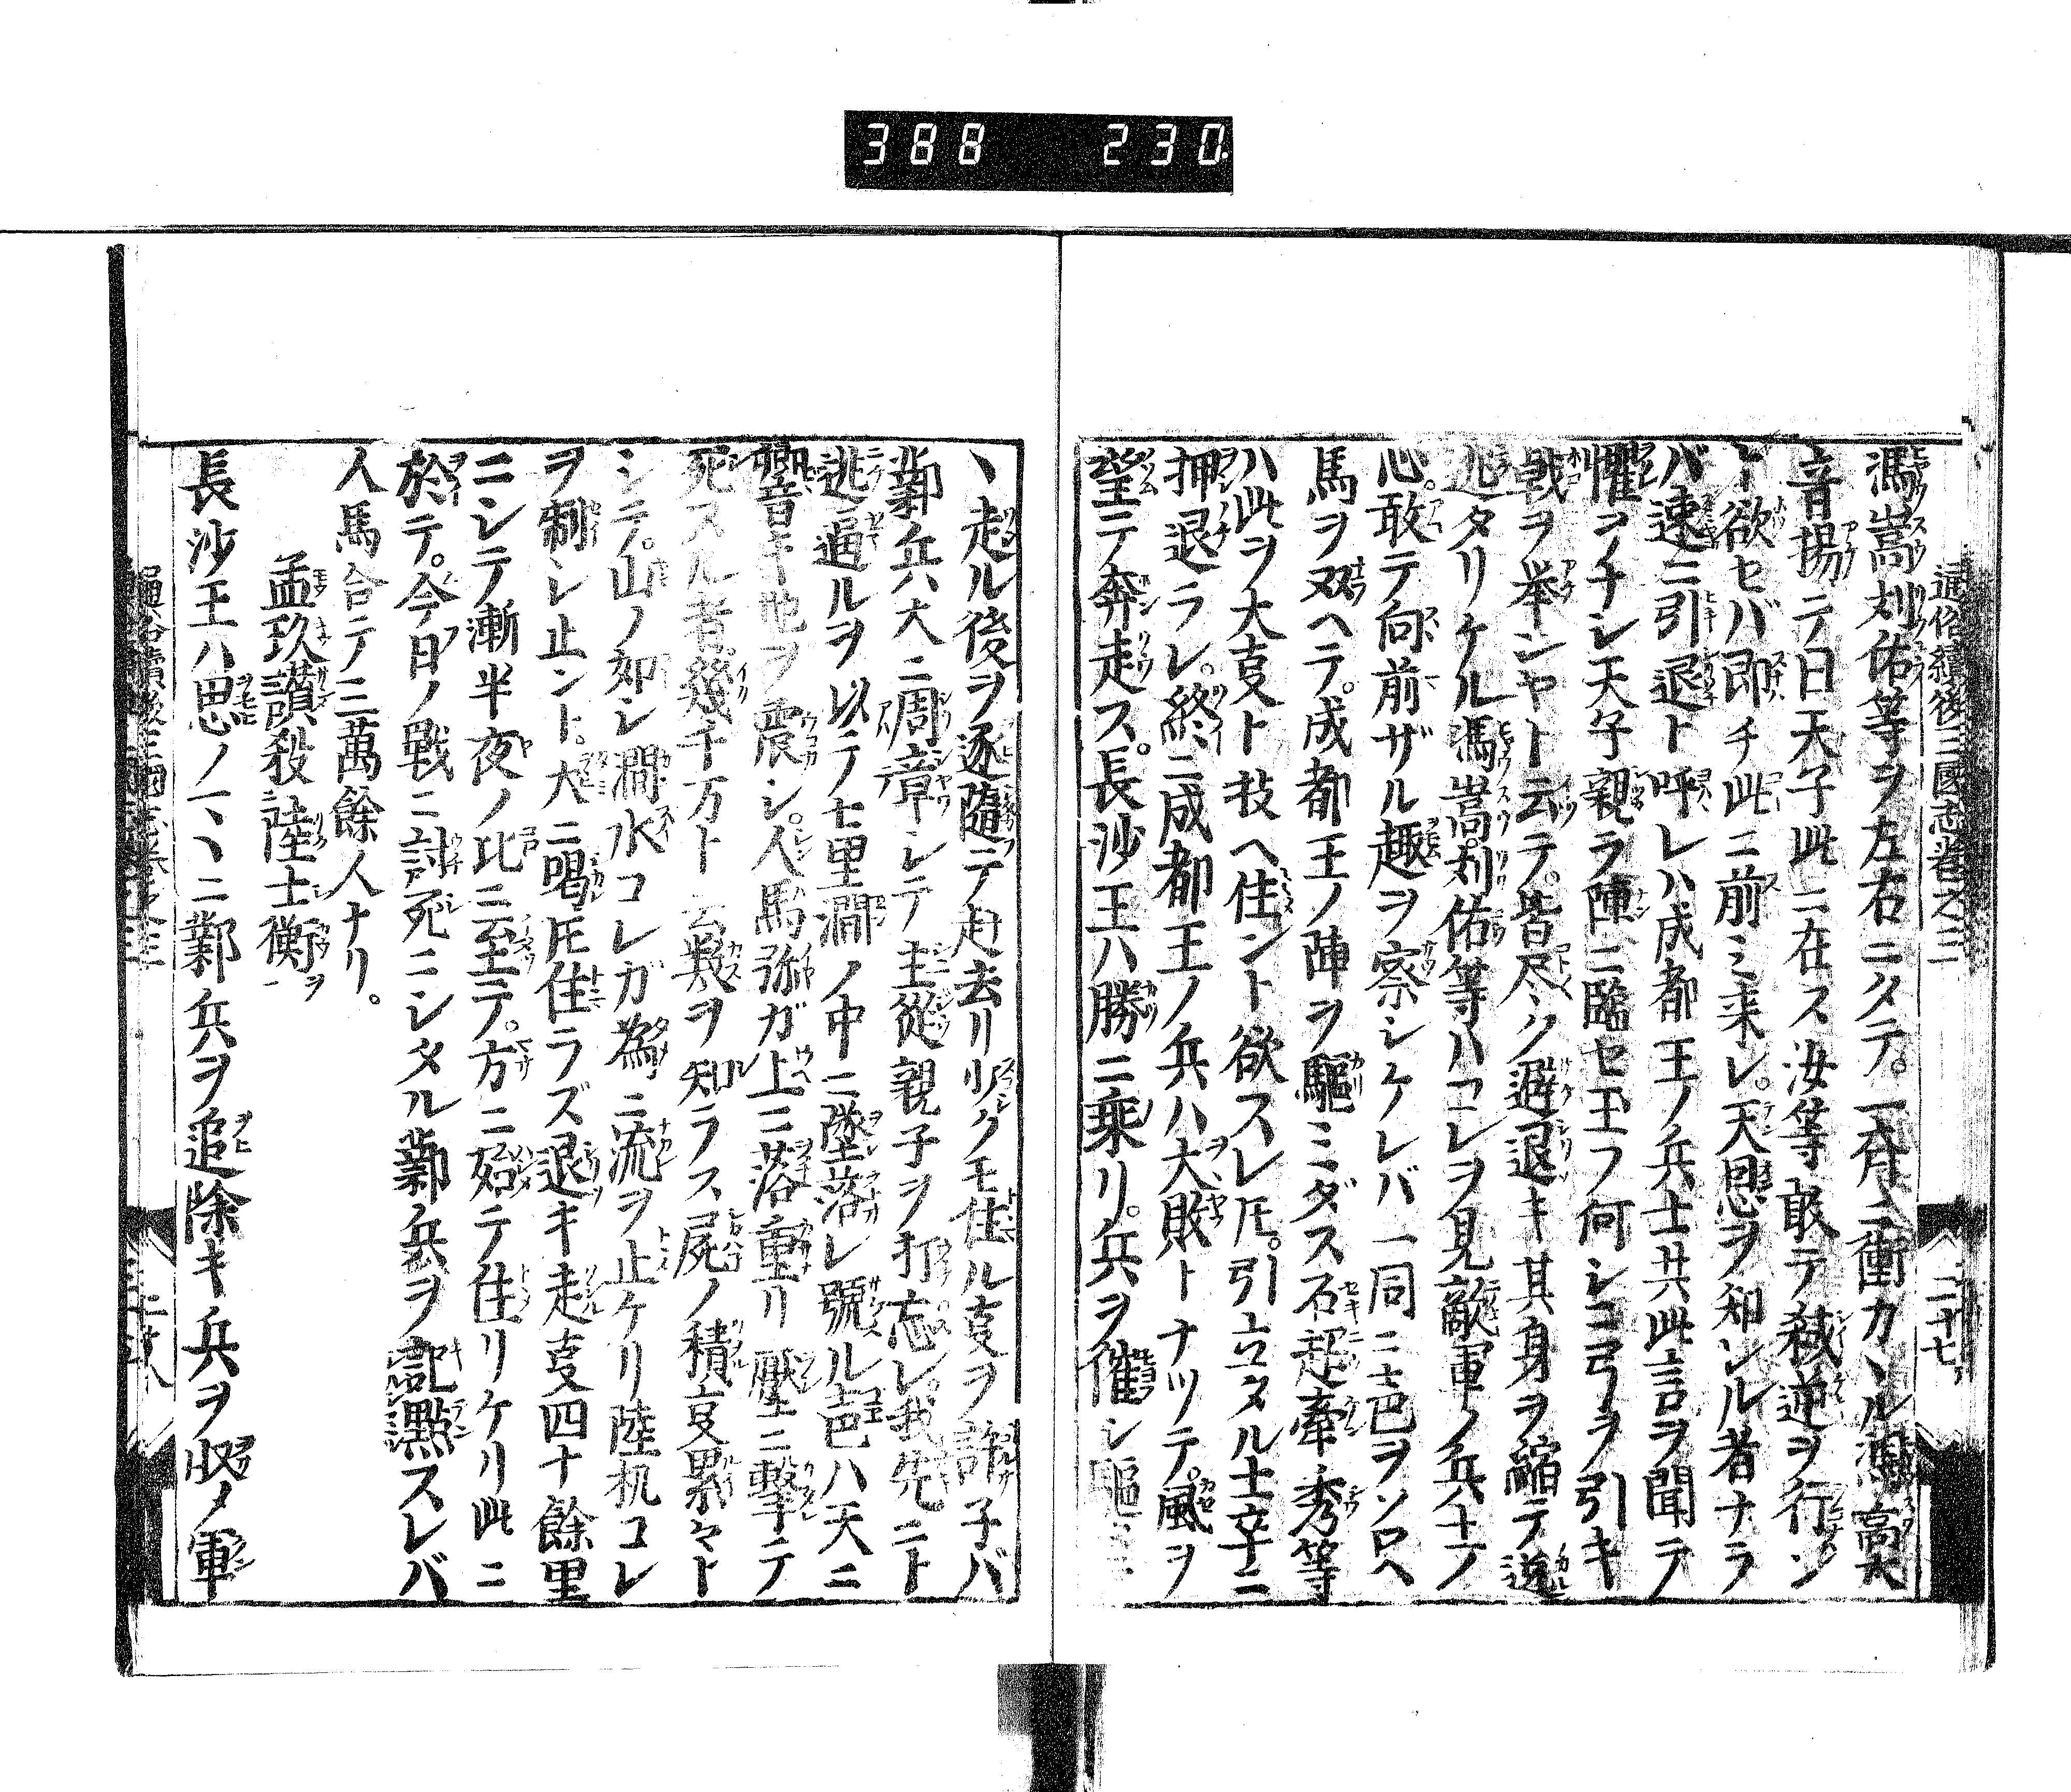 388 230
通俗續後三國志卷之三 二十七
馮嵩刘佑等ヲ左右ニタテ。一斉ニ衝カヽル馮嵩大
音揚テ曰天子此ニ在ス汝等敢テ弑逆ヲ行ン
ト欲セバ即チ此ニ前ミ来レ。天恩ヲ知ンル者ナラ
バ速ニ引退ト呼レハ成都王ノ兵士共此言ヲ聞テ
懼ヲナシ天子親ラ陣ニ臨セ玉フ何シニ弓ヲ引キ
戟ヲ挙ンヤト云テ。皆尽ク避退キ其身ヲ縮テ遁
逃タリケル馮嵩刘佑等ハコレヲ見敵軍ノ兵士フ
心敢テ向前ザル趣ヲ察シケレバ一同ニ士卒ヲソロヘ
馬ヲ双ヘテ。成都王ノ陣ヲ驅ミダス石超牽秀等
ハ此ヲ大叓ト技ヘ住ント欲スレ𪜈。引立タル士卒ニ
押退ラレ。終ニ成都王ノ兵ハ大敗トナツテ。風ヲ
望テ奔走ス。長沙王ハ勝ニ乘リ。兵ヲ催シ驅ミ
ヽ走ル後ヲ逐隨テ赶去リ少クモ住ル叓ヲ許子バ
鄴兵大ニ周章レテ主從親子ヲ打忘レ。我先ニト
逃遁ルヲ以テ七里澗ノ中ニ墜落レ號ル声ハ天ニ
響キ地ヲ震シ。人馬弥ガ上ニ落重リ壓ニ撃テ
死スル者。幾千万ト云數ヲ知ラス屍ノ積叓累々ト
シテ。山ノ如シ澗水コレガ為ニ流ヲ止ケリ陸机コレ
ヲ制シ止ント。大ニ喝𪜈住ラズ退キ走叓四十餘里
ニシテ漸半夜ノ比ニ至テ。方ニ始テ住リケリ此ニ
於テ。今日ノ戰ニ討死ニシタル鄴兵ヲ記點スレバ
人馬合テ三萬餘人ナリ。
孟玖讃殺陸士衡ヲ
長沙王ハ思ノ一ヽニ鄴兵ヲ追除キ兵ヲ収メ軍